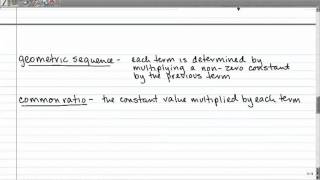 geometric sequence - each term is determined by
multiplying a non-zero constant
by the previous term
common ratio - the constant value multiplied by each term